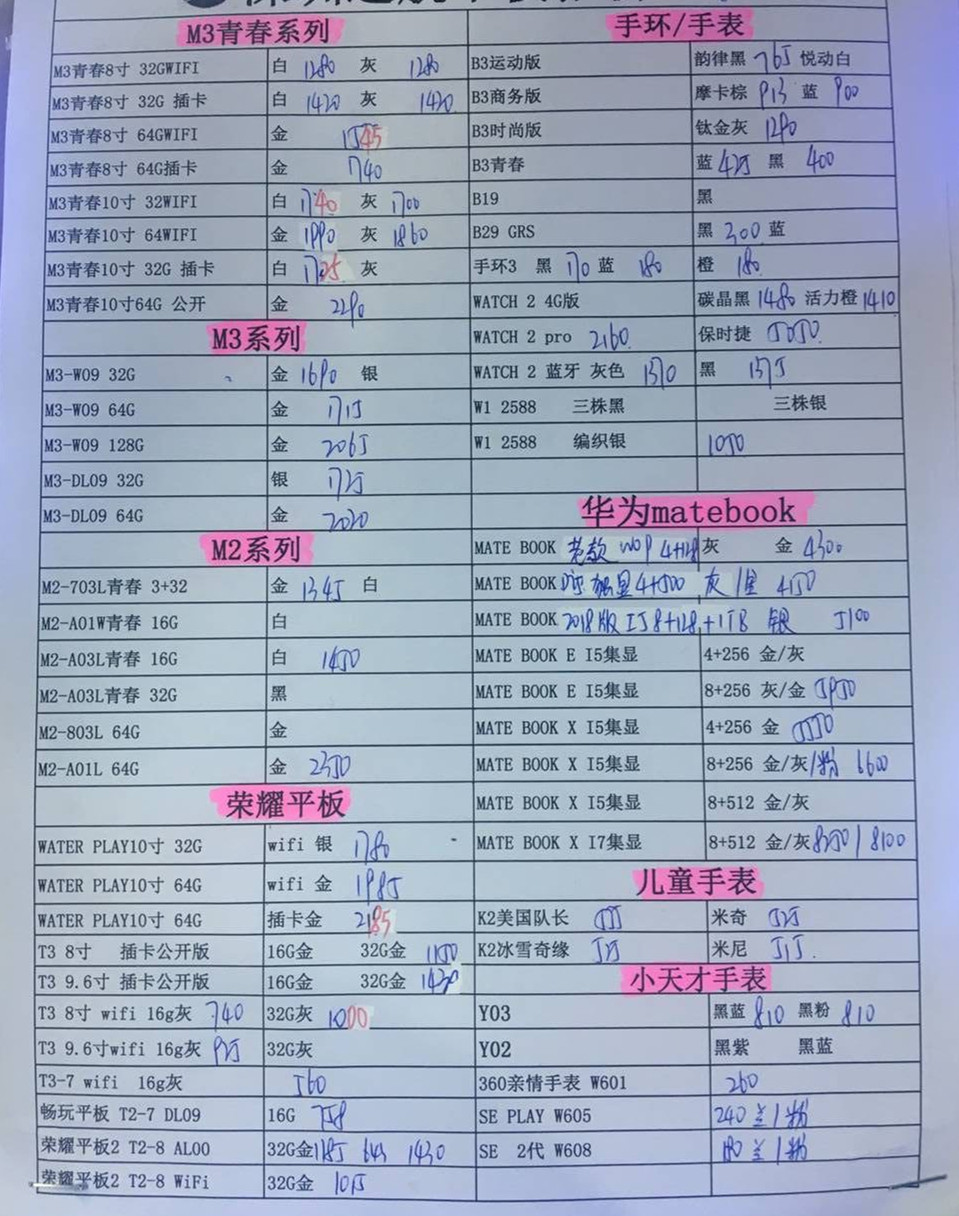 M3青春系列
M3青春8寸 32GWIFI 白 1280 灰 1280
M3青春8寸 32G 插卡 白 1420 灰 1420
M3青春8寸 64GWIFI 金 1545
M3青春8寸 64G插卡 金 1740
M3青春10寸 32WIFI 白 1740 灰 1700
M3青春10寸 64WIFI 金 1990 灰 1860
M3青春10寸 32G 插卡 白 1725 灰
M3青春10寸64G 公开 金 2290
M3系列
M3-W09 32G 金 1690 银
M3-W09 64G 金 1715
M3-W09 128G 金 2065
M3-DL09 32G 银 1725
M3-DL09 64G 金 2020
M2系列
M2-703L青春 3+32 金 1345 白
M2-A01W青春 16G 白
M2-A03L青春 16G 白 1450
M2-A03L青春 32G 黑
M2-803L 64G 金
M2-A01L 64G 金 2350
荣耀平板
WATER PLAY10寸 32G wifi 银 1780
WATER PLAY10寸 64G wifi 金 1985
WATER PLAY10寸 64G 插卡金 2185
T3 8寸 插卡公开版 16G金 32G金 1150
T3 9.6寸 插卡公开版 16G金 32G金 1430
T3 8寸 wifi 16g灰 740 32G灰 1000
T3 9.6寸wifi 16g灰 925 32G灰
T3-7 wifi 16g灰 560
畅玩平板 T2-7 DL09 16G 758
荣耀平板2 T2-8 AL00 32G金1185 64G 1430
荣耀平板2 T2-8 WiFi 32G金 1015
手环/手表
B3运动版 韵律黑 765 悦动白
B3商务版 摩卡棕 913 蓝 900
B3时尚版 钛金灰 1290
B3青春 蓝 425 黑 400
B19 黑
B29 GRS 黑 300 蓝
手环3 黑 170 蓝 180 橙 180
WATCH 2 4G版 碳晶黑 1480 活力橙 1410
WATCH 2 pro 2160 保时捷 5050
WATCH 2 蓝牙 灰色 1370 黑 1375
W1 2588 三株黑 三株银
W1 2588 编织银 1050
华为matebook
MATE BOOK 老款 W09 4+128 灰 金 4300
MATE BOOK 独显4+500 灰/金 4150
MATE BOOK 2018版 I5 8+128+1TB 银 5100
MATE BOOK E I5集显 4+256 金/灰
MATE BOOK E I5集显 8+256 灰/金 5950
MATE BOOK X I5集显 4+256 金 5550
MATE BOOK X I5集显 8+256 金/灰/粉 6600
MATE BOOK X I5集显 8+512 金/灰
MATE BOOK X I7集显 8+512 金/灰 8250/8100
儿童手表
K2美国队长 555 米奇 525
K2冰雪奇缘 525 米尼 515
小天才手表
Y03 黑蓝 810 黑粉 810
Y02 黑紫 黑蓝
360亲情手表 W601 260
SE PLAY W605 240 兰/粉
SE 2代 W608 180 兰/粉